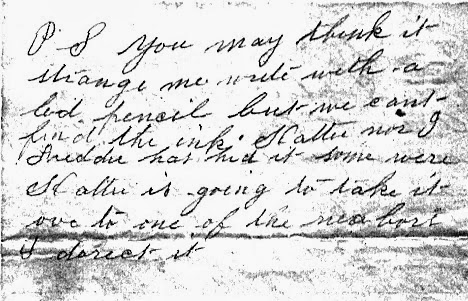 P S You may think it
strange me write with a
led pencil but we cant
find the ink. Hattie nor I
Freddie has hid it some were
Hattie is going to take it
ove to one of the neabors
& darect it